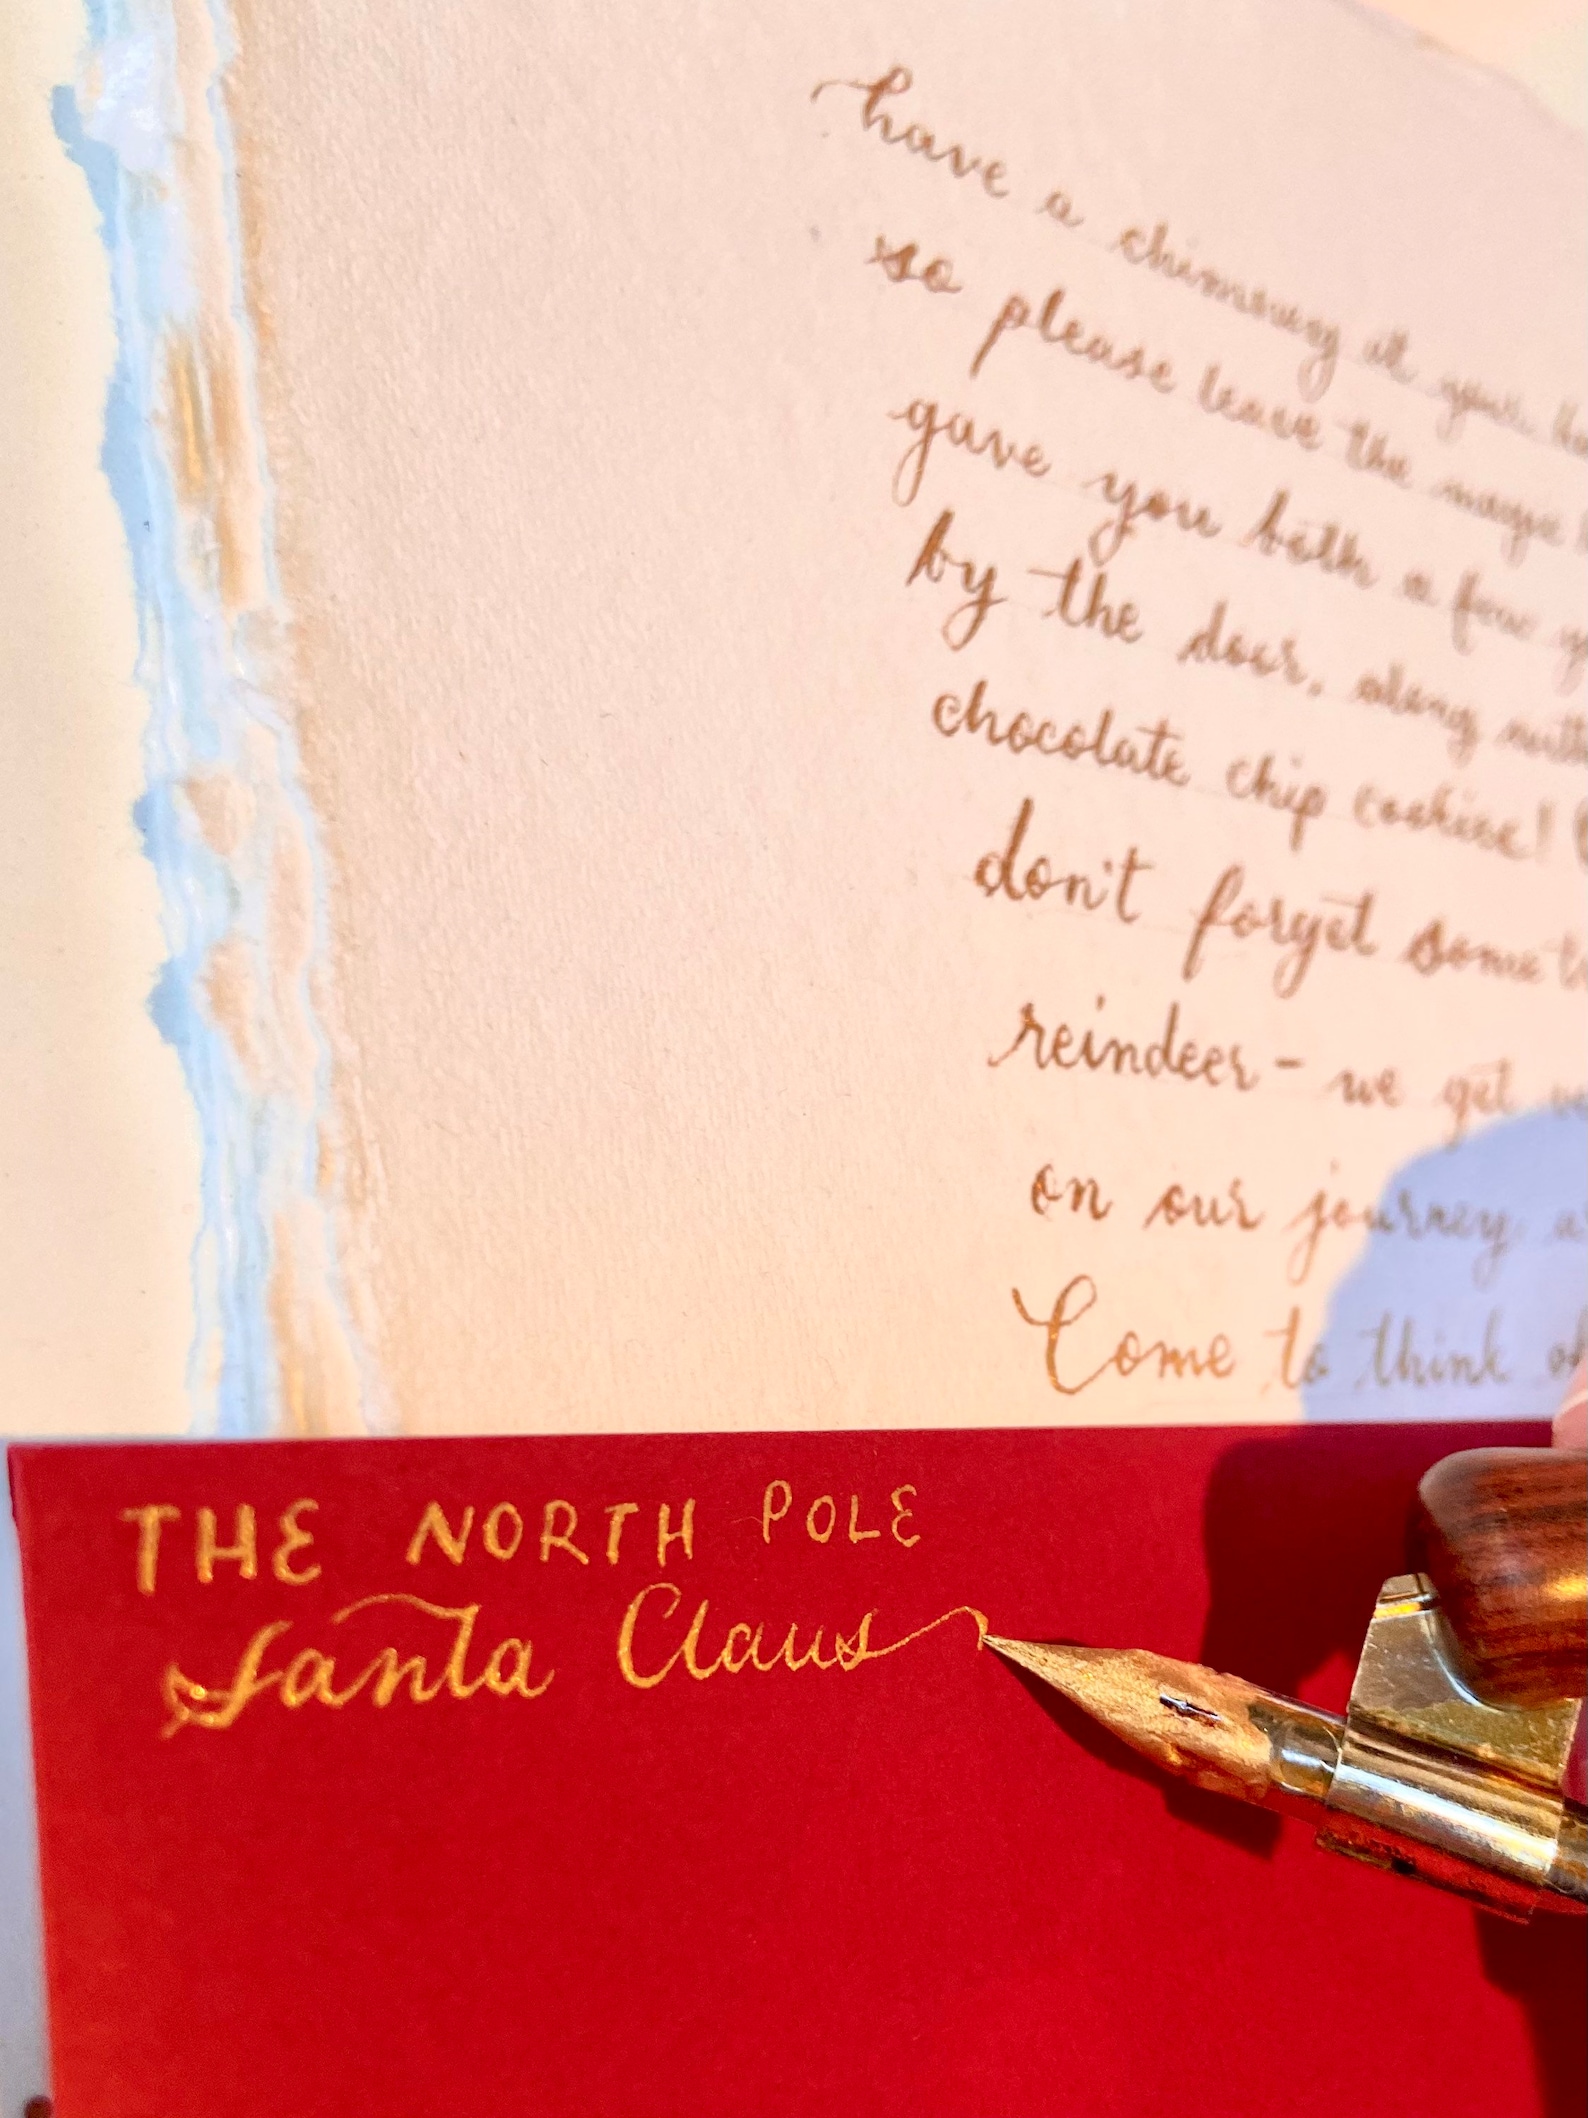 have a chimney at your
so please leave the magic
gave you both a few
by the door, along with
chocolate chip cookies!
don't forget some
reindeer - we get
on our journey
Come to think of
THE NORTH POLE
Santa Claus